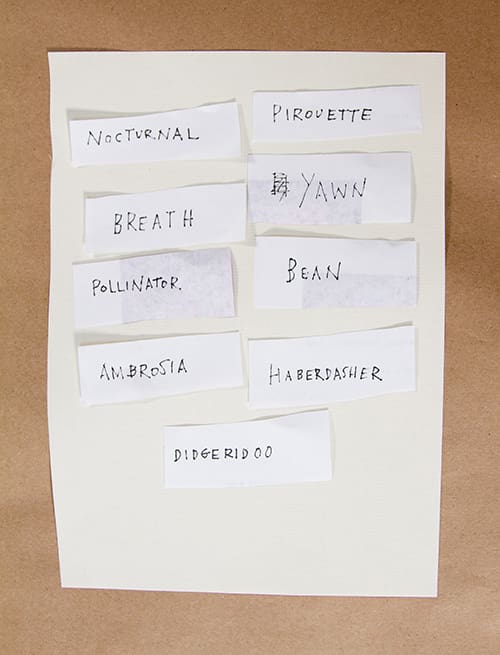 NOCTURNAL
PIROUETTE
BREATH
YAWN
POLLINATOR.
BEAN
AMBROSIA
HABERDASHER
DIDGERIDOO